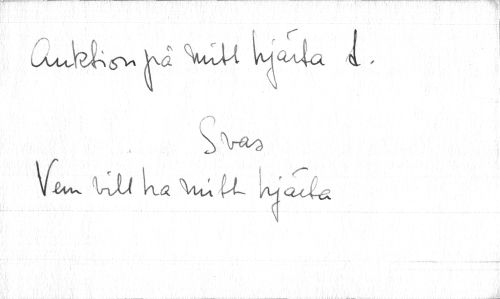 Auktion på mitt hjärta d.
Svas
Vem vill ha mitt hjärta